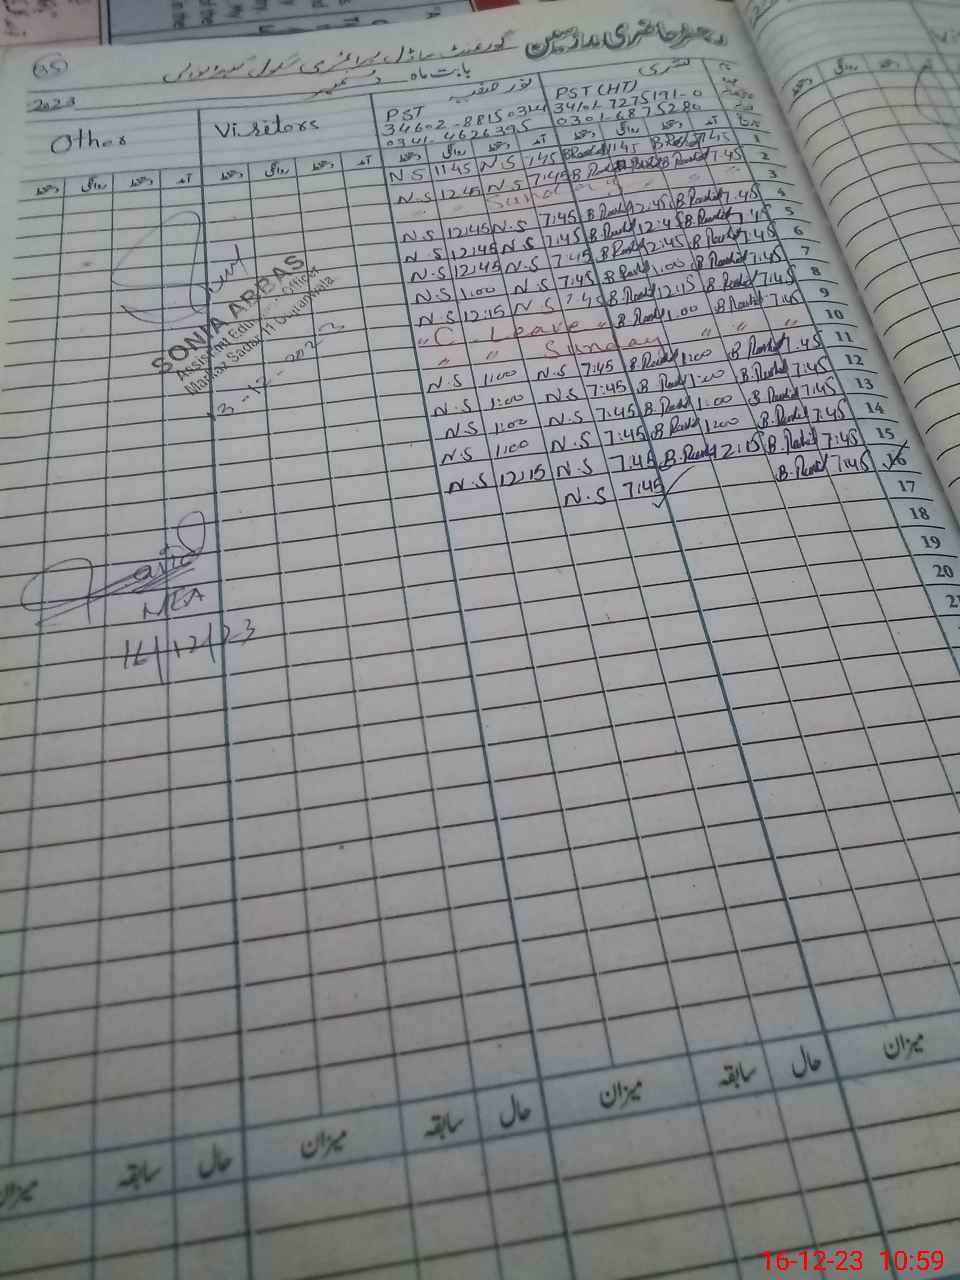 رجسٹر حاضری ملازمین گورنمنٹ ماڈل پرائمری سکول
بابت ماہ دسمبر
2023
Other
Visitors
PST
34602-8815
0341-4626395
PST (HT)
34101-7275191-0
0301-6875280
دستخط روانگی دستخط آمد دستخط روانگی دستخط آمد دستخط روانگی دستخط آمد دستخط روانگی دستخط آمد
N.S 11:45 N.S 7:45 B.Rashid 11:45 B.Rashid 7:45 1
N.S 12:45 N.S 7:45 B.Rashid B.Rashid 7:45 2
Sunday 3
N.S 12:45 N.S 7:45 B.Rashid 12:45 B.Rashid 7:45 4
N.S 12:45 N.S 7:45 B.Rashid 12:45 B.Rashid 7:45 5
N.S 12:45 N.S 7:45 B.Rashid 12:45 B.Rashid 7:45 6
N.S 1:00 N.S 7:45 B.Rashid 1:00 B.Rashid 7:45 7
N.S 12:15 N.S 7:45 B.Rashid 12:15 B.Rashid 7:45 8
" C. Leave " B.Rashid 1:00 B.Rashid 7:45 9
" " Sunday " " " 10
N.S 1:00 N.S 7:45 B.Rashid 1:00 B.Rashid 7:45 11
N.S 1:00 N.S 7:45 B.Rashid 1:00 B.Rashid 7:45 12
N.S 1:00 N.S 7:45 B.Rashid 1:00 B.Rashid 7:45 13
N.S 1:00 N.S 7:45 B.Rashid 1:00 B.Rashid 7:45 14
N.S 12:15 N.S 7:45 B.Rashid 12:15 B.Rashid 7:45 15
N.S 7:45 B.Rashid 7:45 16
17
18
19
20
21
SONIA ARBBAS
Assistant Education Officer
Markaz Sadar II Gujranwala
13-12-2023
MEA
16/12/23
میزان حال سابقہ میزان حال سابقہ میزان حال سابقہ میزان
16-12-23 10:59